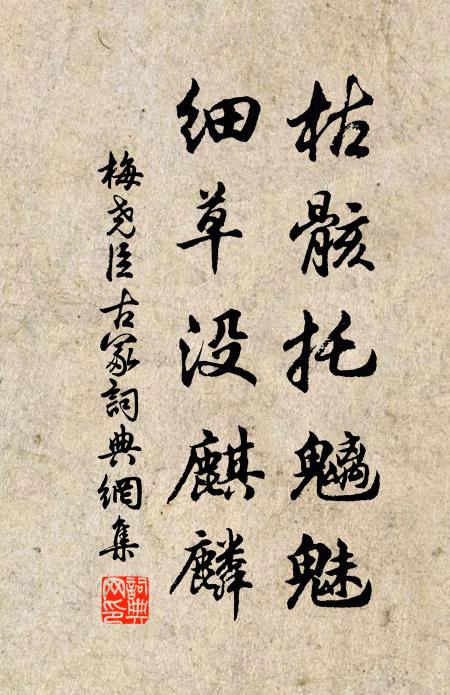 枯骸托魑魅
细草没麒麟
梅尧臣古冢詞典網集
詞典